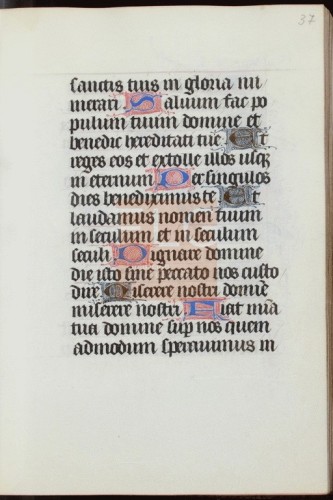 37
sanctis tuis in gloria nu
merari. Saluum fac po
pulum tuum domine et
benedic hereditati tue. Et
reges eos et extolle illos usq
in eternum. Per singulos
dies benediximus te. Et
laudamus nomen tuum
in seculum et in seculum
seculi. Dignare domine
die isto sine peccato nos custo
dire. Miserere nostri domine
miserere nostri. Fiat mia
tua domine sup nos quem
admodum sperauimus in